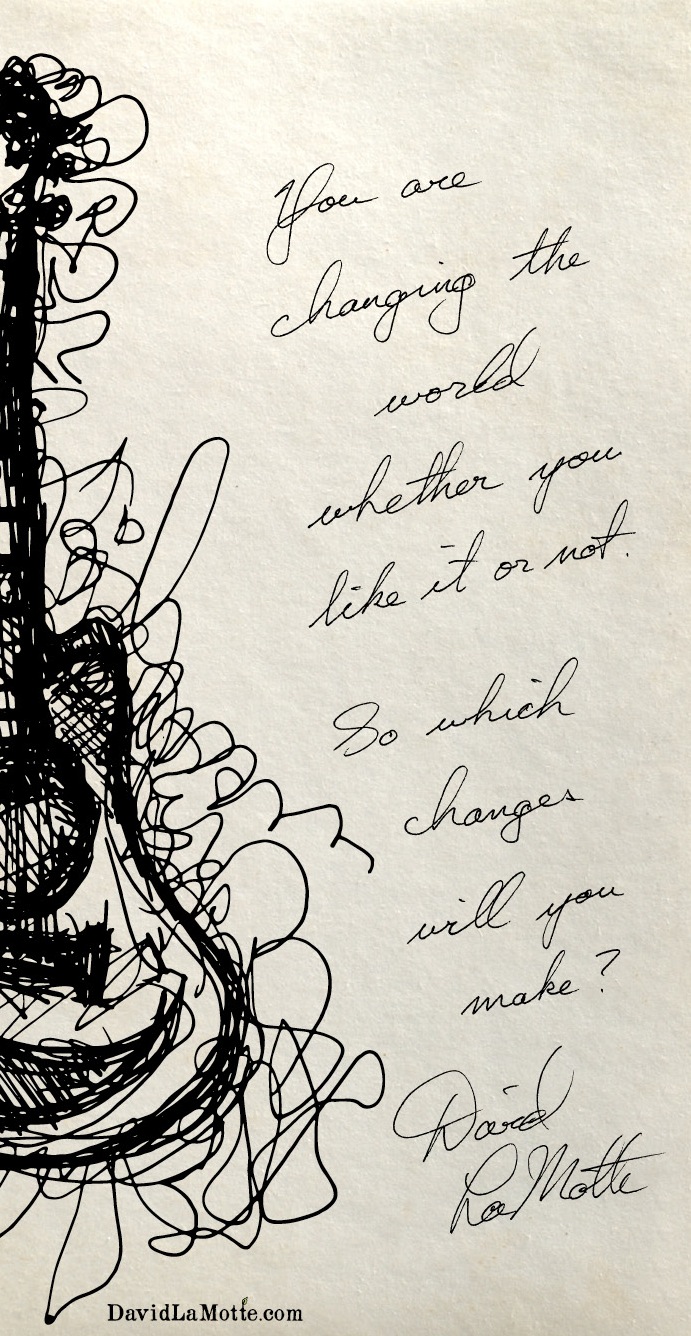 You are
changing the
world
whether you
like it or not.
So which
changes
will you
make?
David
LaMotte
DavidLaMotte.com